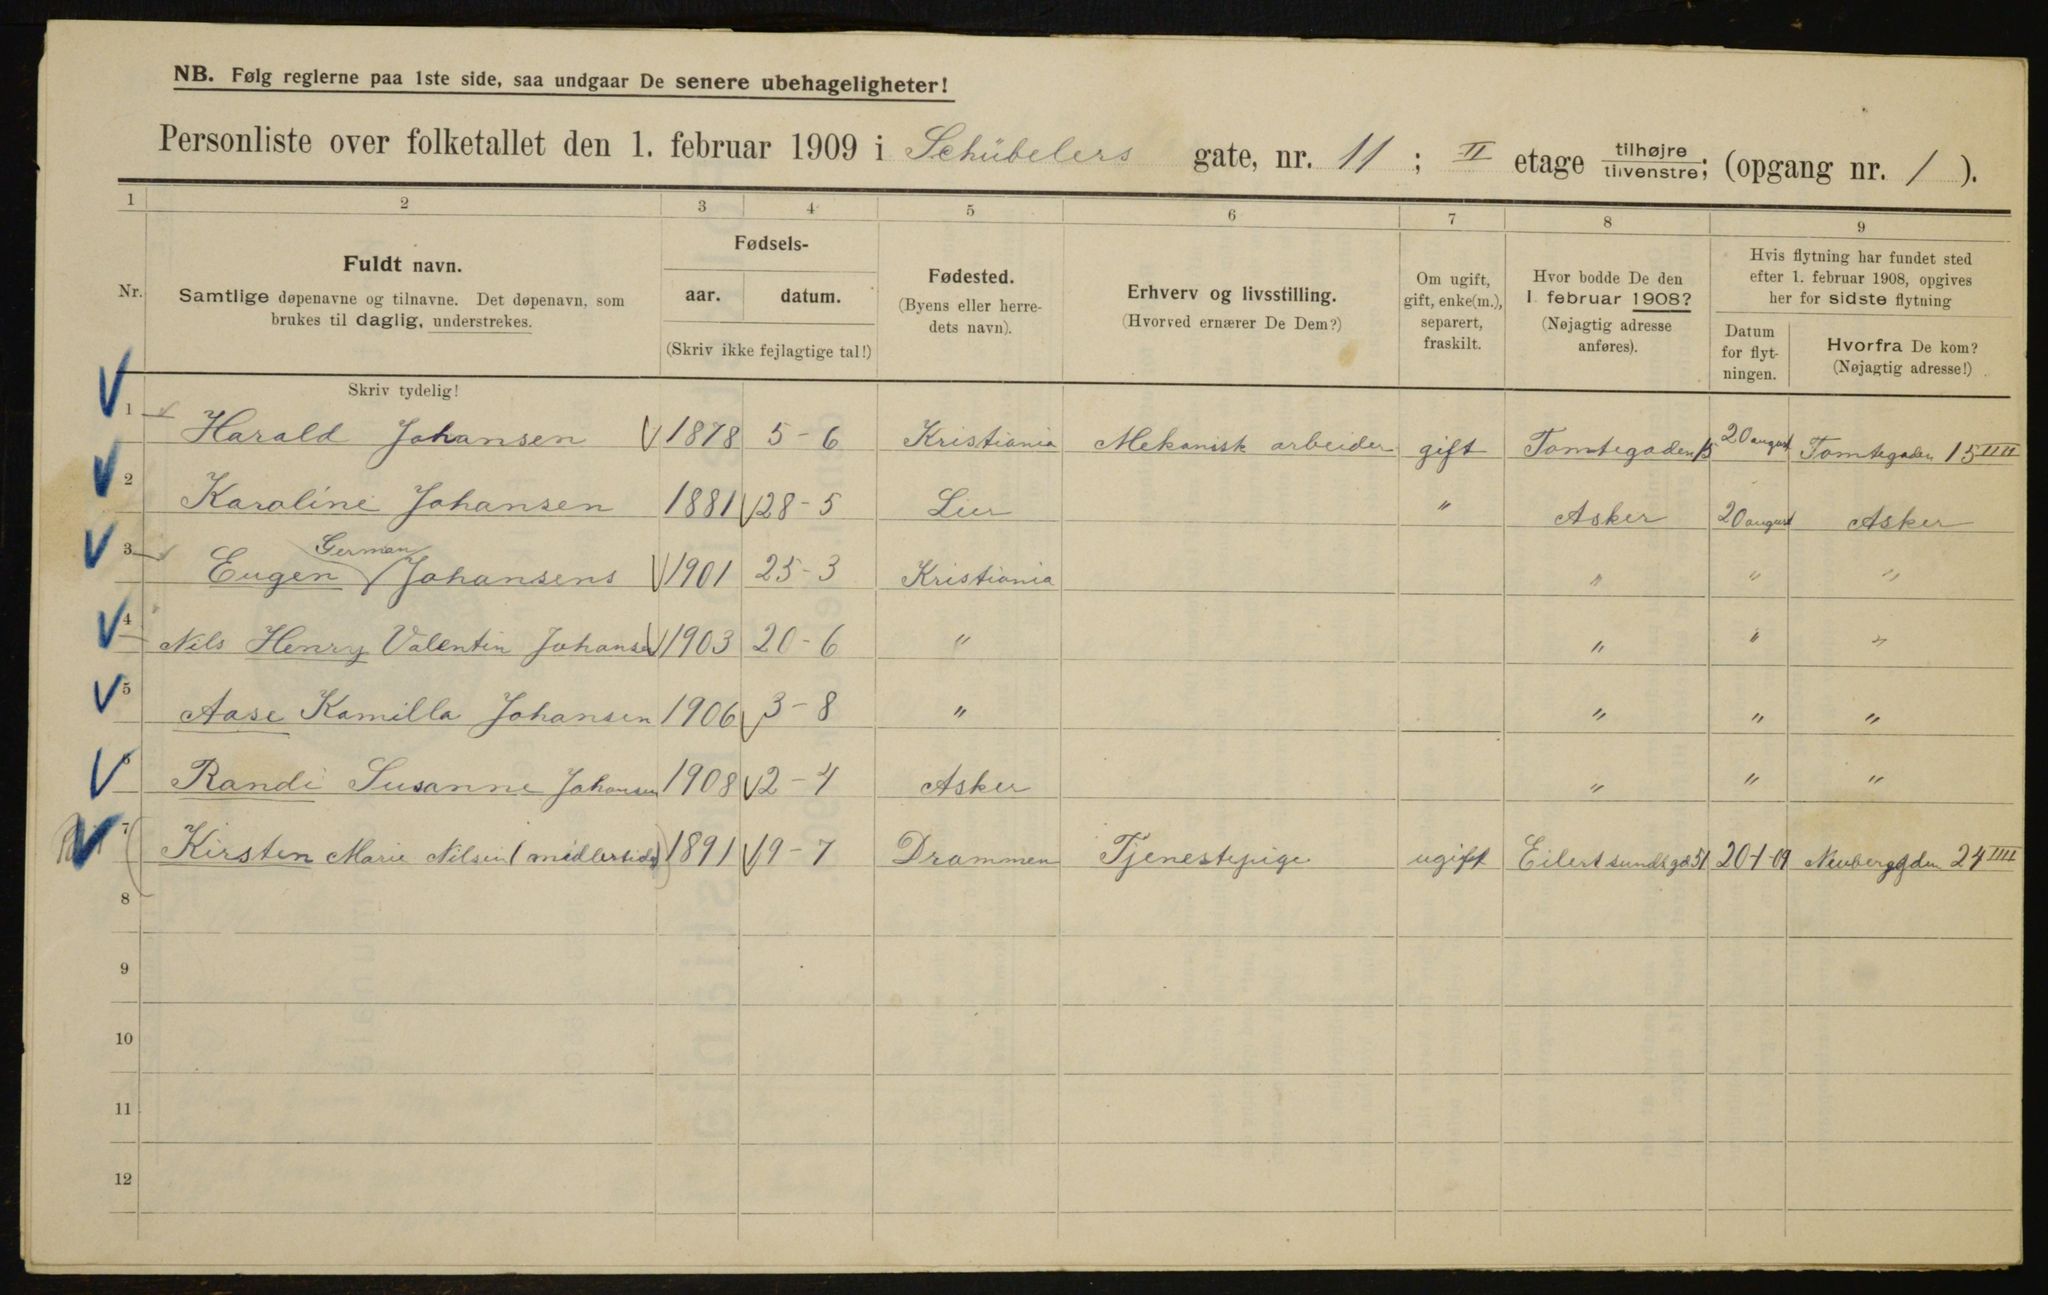 NB. Følg reglerne paa 1ste side, saa undgaar De senere ubehageligheter!
Personliste over folketallet den 1. februar 1909 i Schübelers gate, nr. 11 ; II etage tilhøjre/tilvenstre; (opgang nr. 1 ).
1 2 3 4 5 6 7 8 9
Nr.
Fuldt navn.
Samtlige døpenavne og tilnavne. Det døpenavn, som
brukes til daglig, understrekes.
Skriv tydelig!
Fødsels-
aar. datum.
(Skriv ikke fejlagtige tal!)
Fødested.
(Byens eller herre-
dets navn).
Erhverv og livsstilling.
(Hvorved ernærer De Dem?)
Om ugift,
gift, enke(m.),
separert,
fraskilt.
Hvor bodde De den
1. februar 1908?
(Nøjagtig adresse
anføres).
Hvis flytning har fundet sted
efter 1. februar 1908, opgives
her for sidste flytning
Datum
for flyt-
ningen.
Hvorfra De kom?
(Nøjagtig adresse!)
1 Harald Johansen 1878 5-6 Kristiania Mekanisk arbeider gift Tomtegaden 15 20 august Tomtegaden 15 IIII
2 Karoline Johansen 1881 28-5 Lier " Asker 20 august Asker
3 Eugen German Johansens 1901 25-3 Kristiania " " "
4 Nils Henry Valentin Johansen 1903 20-6 " " " "
5 Aase Kamilla Johansen 1906 3-8 " " " "
6 Randi Susanne Johansen 1908 2-4 Asker " " "
7 (Kirsten Marie Nilsen (midlertidig) 1891 19-7 Drammen Tjenestepige ugift Eilert sundtsgd 51 20-1-09 Neuberggden 24 IIII
8
9
10
11
12